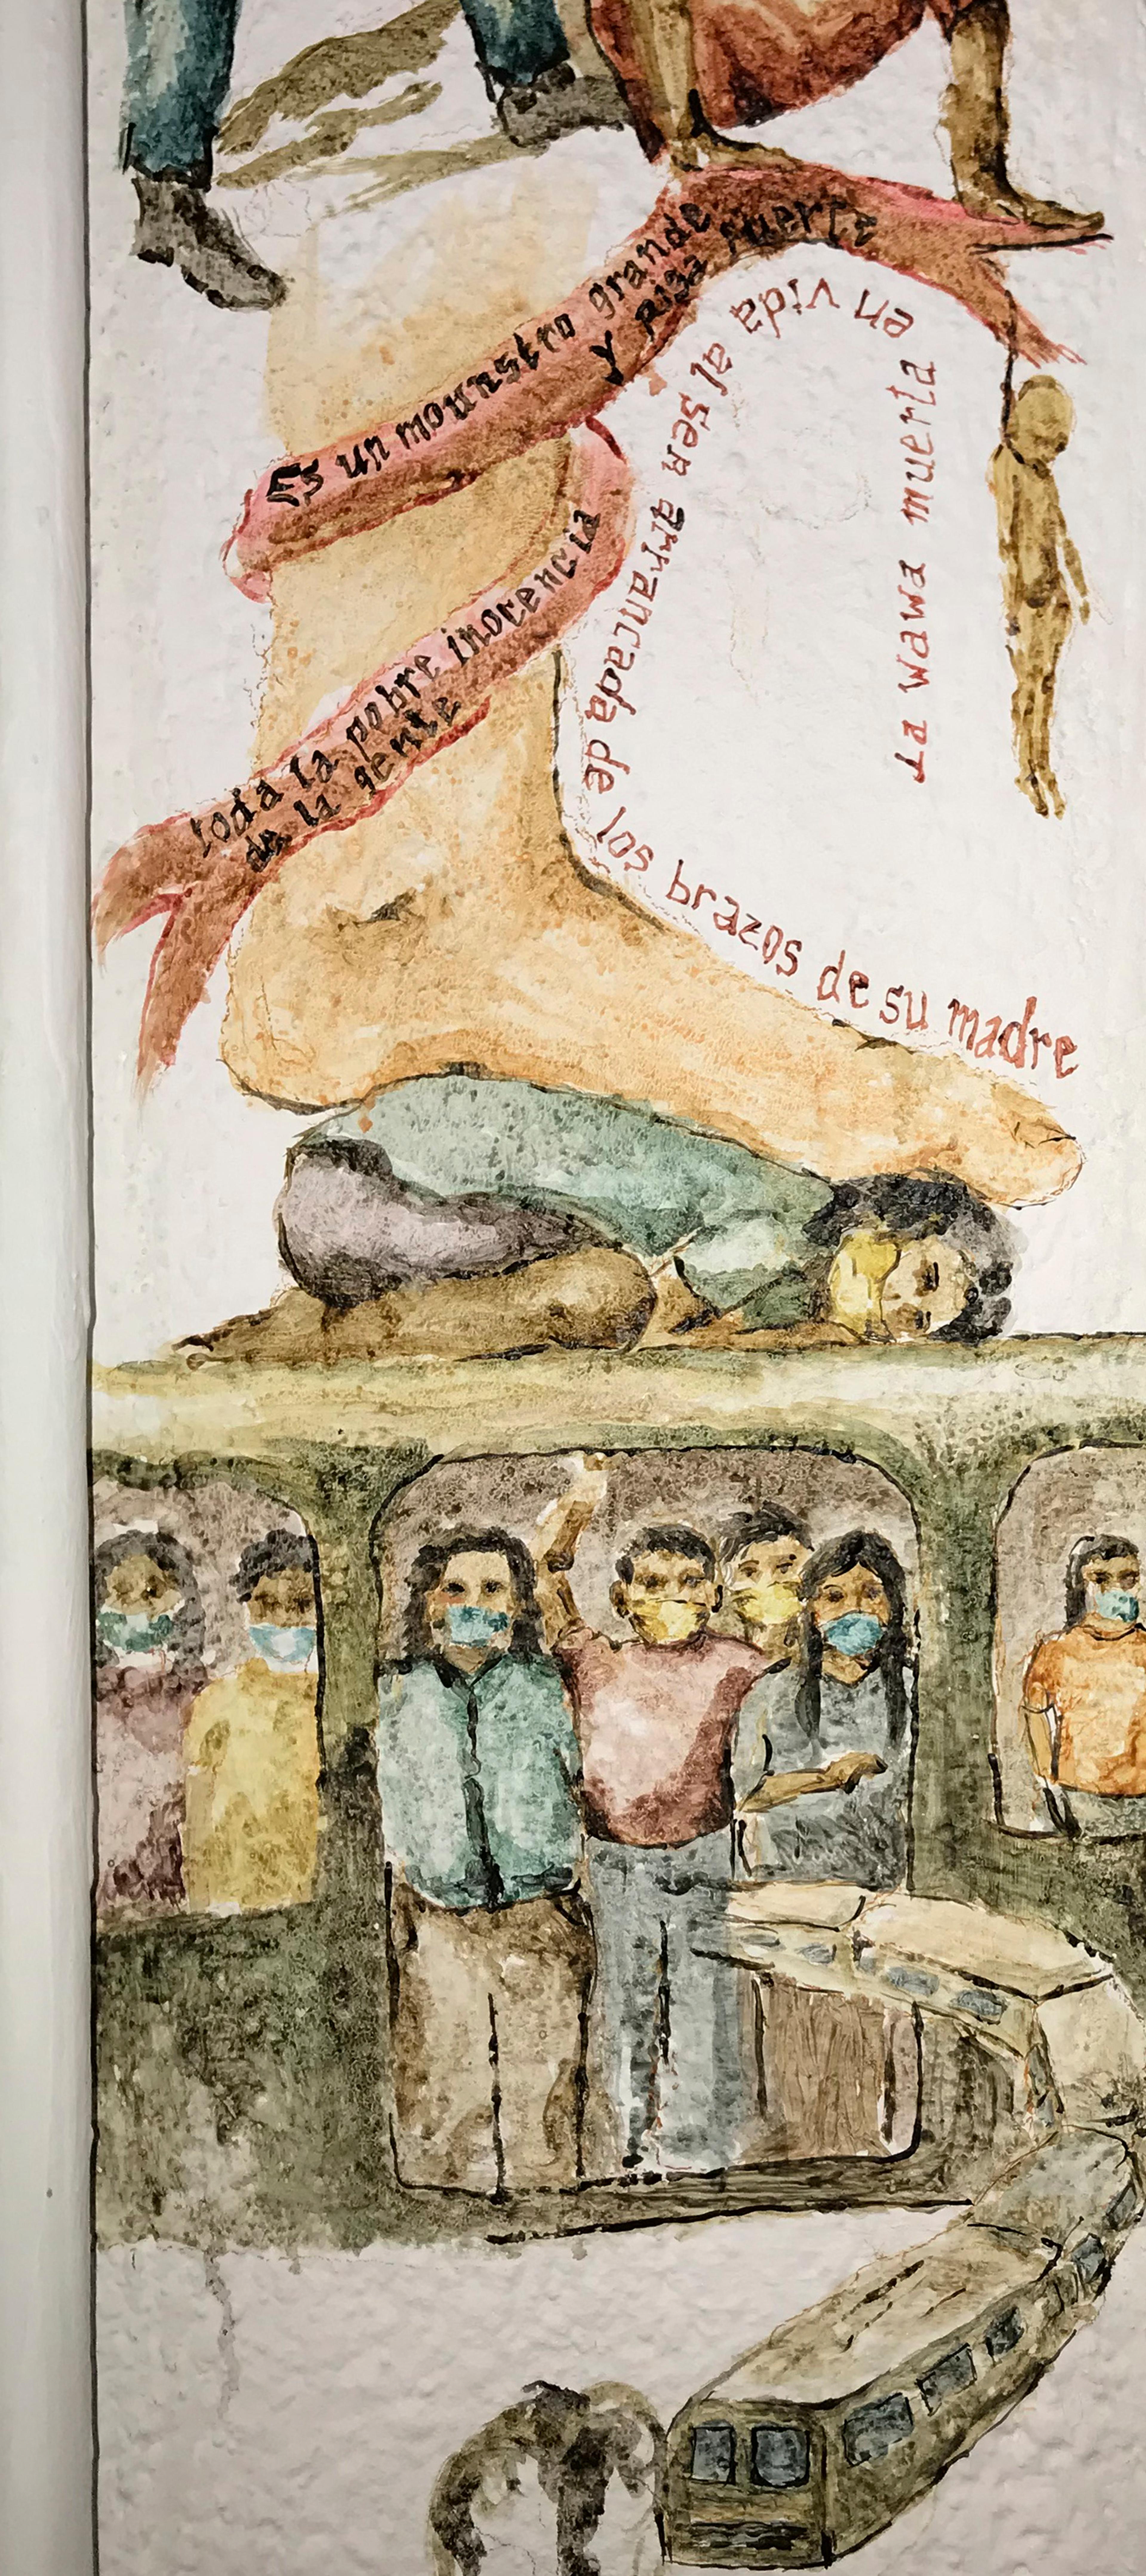 Es un mounstro grande
y pisa fuerte
toda la pobre inocencia
de la gente
La wawa muerta
en vida
al ser arrancada de los brazos de su madre